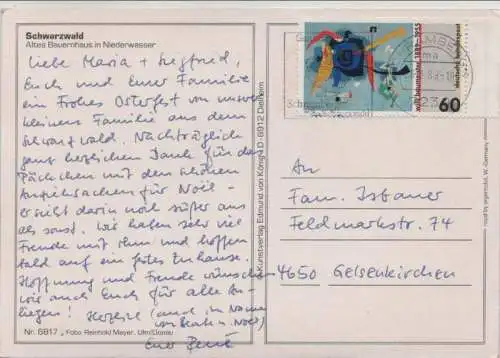 Schwarzwald
Altes Bauernhaus in Niederwasser
Liebe Maria + Siegfried,
Euch und Eurer Familie
ein Frohes Osterfest von unserer
kleinen Familie aus dem
Schwarzwald. Nachträglich
ganz herzlichen Dank für das
Päckchen mit den schönen
Anziehsachen für Noël -
er sieht darin noch süßer aus
als sonst. Wir haben sehr viel
Freude mit ihm und hoffen
bald auf ein gutes Zuhause.
Hoffnung und Freude wünschen
wir auch Euch für alle An-
liegen! Herzlichst (auch im Namen
von Noël)
Eure
Nr. 8817 Foto: Reinhold Mayer, Ulm/Donau
Kunstverlag Edmund von König · D-6912 Dielheim
willi baumeister 1889-1955
deutsche bundespost
60
An
Fam. Isbauer
Feldmarkstr. 74
4650 Gelsenkirchen